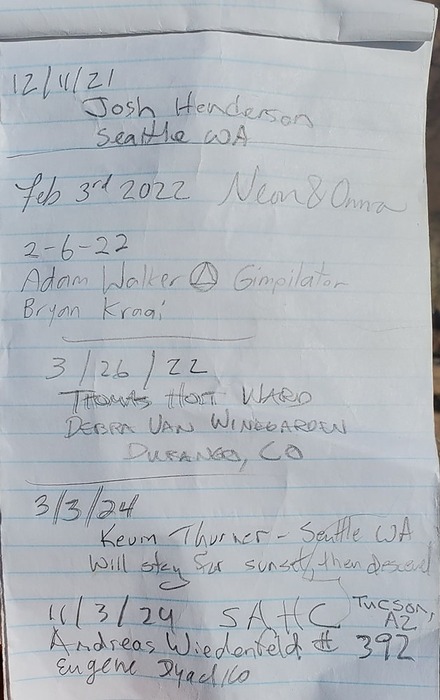 12/11/21
Josh Henderson
Seattle WA
Feb 3rd 2022 Neon & Onna
2-6-22
Adam Walker Gimpilator
Bryan Kraai
3/26/22
Thomas Hort WARD
DEBRA VAN WINEGARDEN
DURANGO, CO
3/3/24
Kevin Thurner - Seattle WA
Will stay for sunset, then descend
11/3/24 SAHC Tucson, AZ
Andreas Wiedenfeld # 392
Eugene